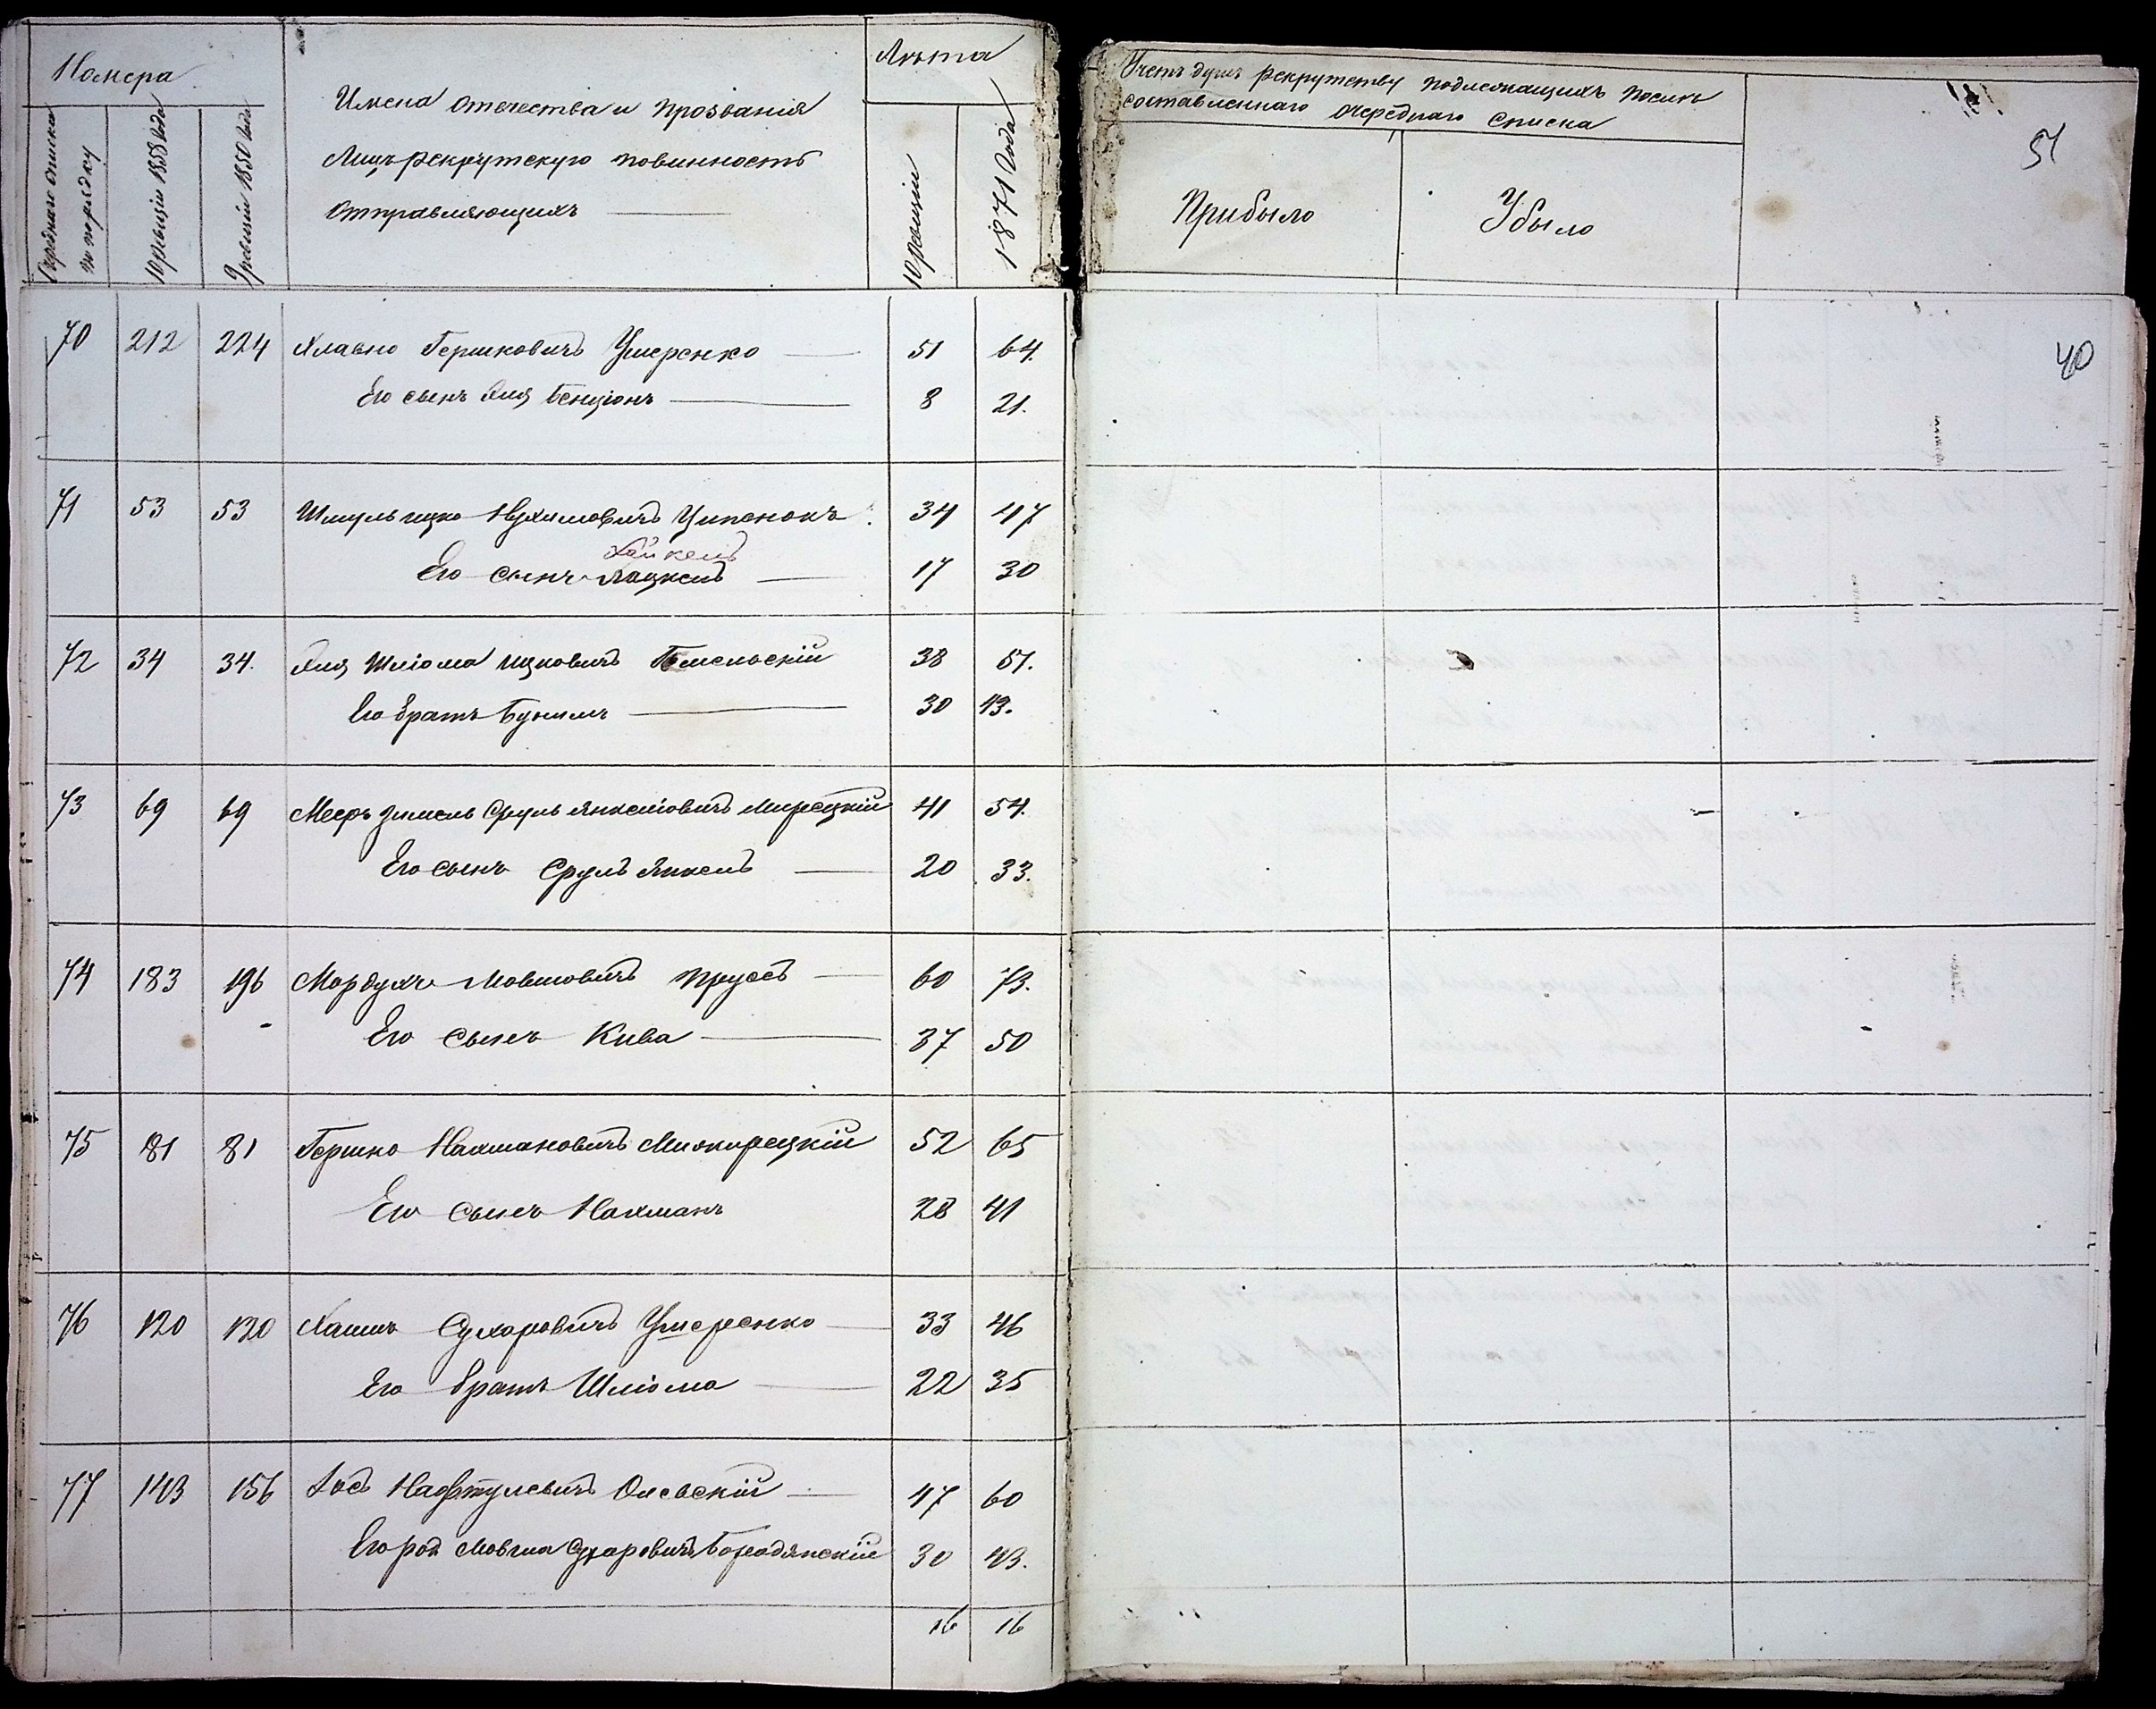 Номера
Лѣта
Очереднаго списка по порядку
10 ревизіи 1858 года
9 ревизіи 1850 года
Имена отечества и прозванія
Лицъ рекрутскую повинность
отправляющихъ
10 ревизіи
1871 года
Учетъ душъ рекрутству подлежащихъ послѣ
составленнаго очереднаго списка
Прибыло
Убыло
51
40
70 212 224 Хлавно Гершковичъ Ушеренко 51 64.
Его сынъ Эля Бенціонъ 8 21.
71 53 53 Шмуль ицко Нухимовичъ Ципенокъ 34 47
Хайкель
Его сынъ 17 30
72 34 34. Эля Шліома ицковичъ Гомельскій 38 51.
Его братъ Бунимъ 30 43.
73 69 69 Мееръ Зимель Сруль Янкеліовичъ Мирецкій 41 54.
Его сынъ Сруль Янкель 20 33.
74 183 196 Мордухъ Мовшовичъ Прусъ 60 73.
Его сынъ Кива 37 50
75 81 81 Гершко Нахмановичъ Мижирецкій 52 65
Его сынъ Нахманъ 28 41
76 120 120 Хаимъ Сухоровичъ Ушеренко 33 46
Его братъ Шліома 22 35
77 143 156 Іосъ Нафтулевичъ Олевскій 47 60
Его род Мовша Сухаровичъ Бородянскій 30 43.
16 16